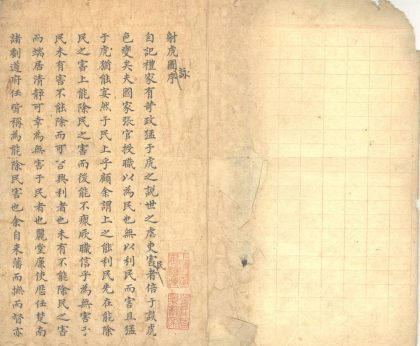 射虎圖詠序
自記禮家有苛政猛于虎之說世之虐吏害民者倍于談虎
色變矣夫國家張官授職以為民也無以利民而害且猛
于虎猶能宴然于民上乎顧余謂上之能利民先在能除
民之害上能除民之害而後能不瘝厥職信乎為無害于
民未有害不能除而可㠯興利者也未有不能除民之害
而端居清靜可幸為無害于民者也麗堂廉使歷任楚南
諸劇道府任皆稱為能除民害也余自來藩而撫而督亦